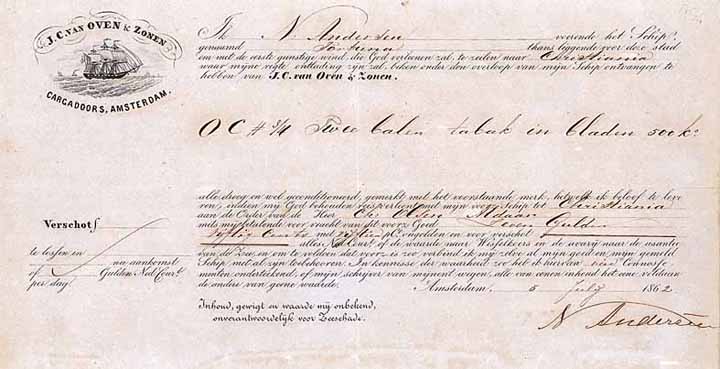 J. C. VAN OVEN & ZONEN
CARGADOORS, AMSTERDAM.
Ik N. Andersen voerende het Schip,
genaamd Fortuna thans leggende voor deze stad
om met de eerste gunstige wind, die God verleenen zal, te zeilen naar Christiania
waar mijne regte ontlading zijn zal, beken onder den overloop van mijn Schip ontvangen te
hebben van J. C. van Oven & Zonen.
OC # 3/4 Twee balen tabak in bladen 500 k°
alle droog en wel geconditioneerd, gemerkt met het voorstaande merk, hetwelk ik beloof te leve
ren, indien mij God behouden reis verleent met mijn voorz. Schip tot Christiania
aan de Order van de Heer Chr Olsen
mits mij betalende voor vracht van dit voorz. Goed zeven Gulden
vijftig Cents vijftien pCt. ongelden en voor verschot
alles Ned. Cour. of de waarde naar Wisselkoers en de avarij naar de usantie
van de Zee, en om te voldoen dat voorz. is zoo verbind ik mij zelve al mijn goed en mijn gemeld
Schip met al zijn toebehooren. In kennisse der waarheid zoo heb ik hiervan Connosse
menten onderteekend, of mijn schrijver van mijnent wegen, alle van eenen inhoud het eene voldaan
de andere van geene waarde.
Amsterdam, 5 July 1862
Verschot f
te lossen in na aankomst
of Gulden Ned. Cour.
per dag
Inhoud, gewigt en waarde mij onbekend,
onverantwoordelijk voor Zeeschade.
N Andersen